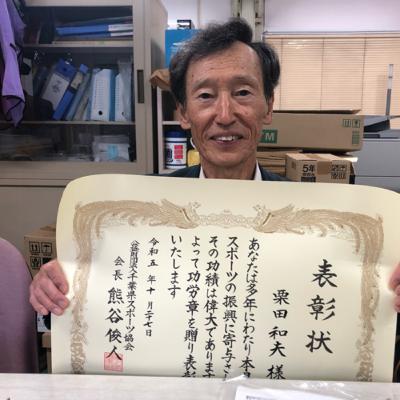 表彰状
栗田和夫様
あなたは多年にわたり本
スポーツの振興に寄与さ
その功績は偉大であります
よって功労章を贈り表彰
いたします
令和五年十月二十七日
公益財団法人千葉県スポーツ協会
会長 熊谷俊人
5年
M